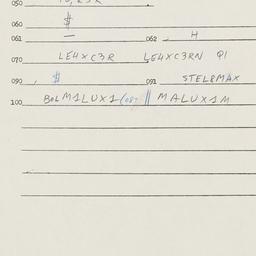 050
060 $
061 — 062 - H
070 LE4XC3R LE4XC3RN Q1
090 , $ 091 STELPMAX
100 BOLM1LUX1 (08) || MALUX1M